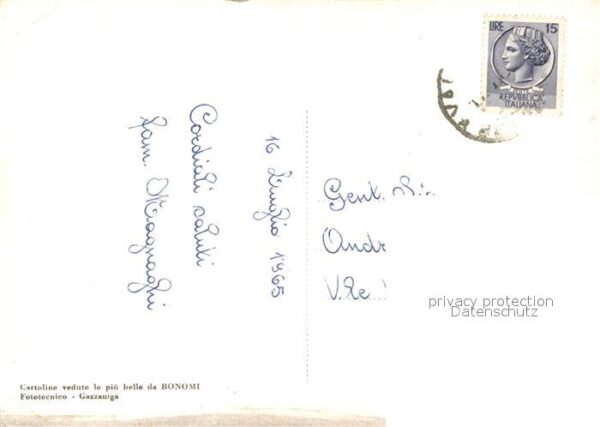 LIRE 15
POSTE
REPVBBLICA
ITALIANA
16 Luglio 1965
Cordiali saluti
fam. Magnaghi
Gent.
Andr
V.le
privacy protection
Datenschutz
Cartoline vedute le più belle da BONOMI
Fototecnico - Gazzaniga